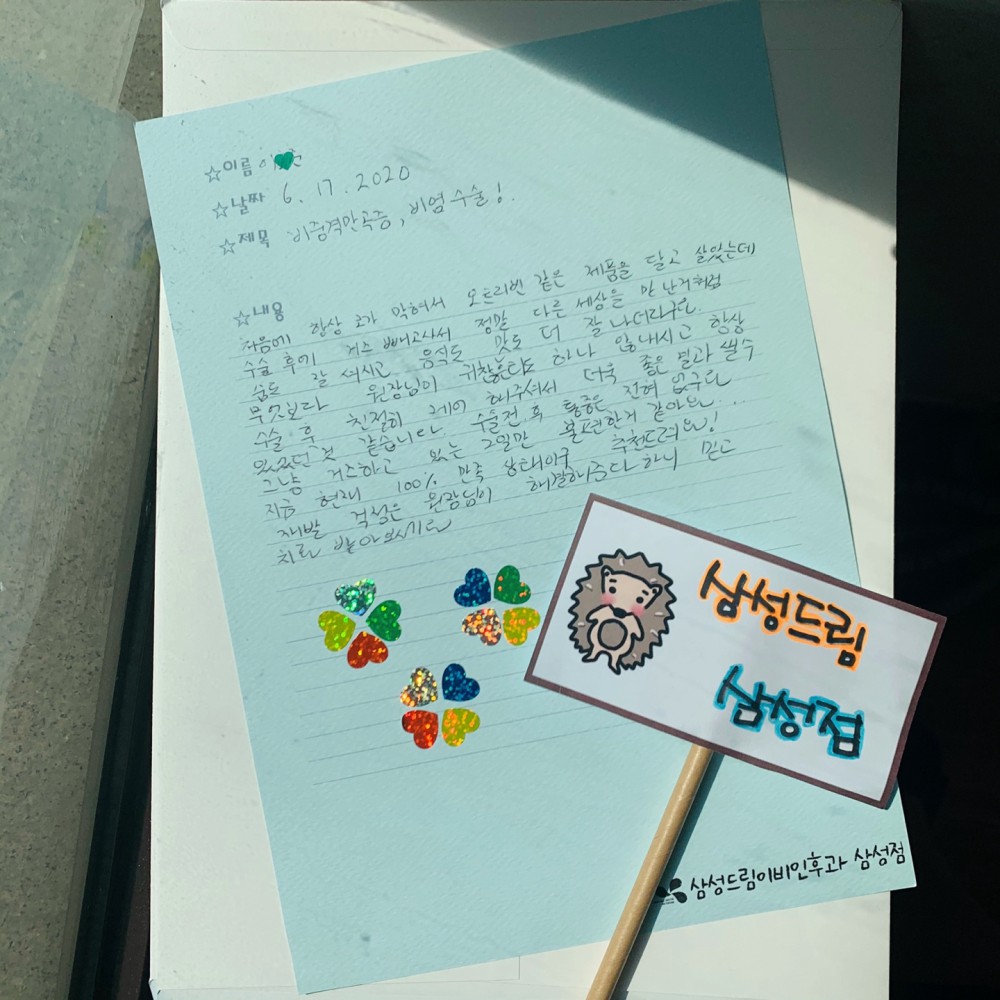 ☆이름 이
☆날짜 6. 17. 2020
☆제목 비중격만곡증, 비염 수술!
☆내용
처음에 항상 코가 막혀서 오트리빈 같은 제품을 달고 살았는데
수술 후에 거즈 빼고나서 정말 다른 세상을 만난거처럼
숨도 잘 쉬시고 음식도 맛도 더 잘 나더라구요.
무엇보다 원장님이 귀찮은티 하나 안내시고 항상
수술 후 친절히 케어 해주셔서 더욱 좋은 결과 쌀수
있었던 것 같습니다. 수술전 후 통증은 전혀 없구요
그냥 거즈하고 있는 2일만 불편한거 같아요...
지금 현재 100% 만족 상태이구 추천드려요!
재발 걱정은 원장님이 해결해주다 하니 믿고
치료 받아보시기를
삼성드림
삼성점
삼성드림이비인후과 삼성점